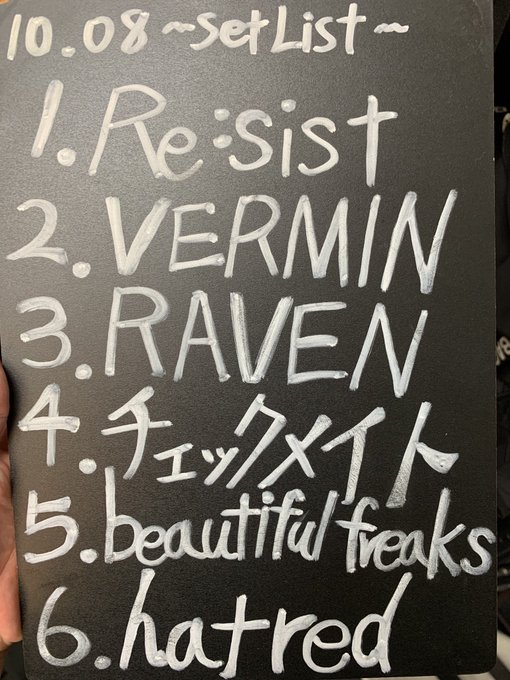 10.08 ~Set List~
1. Re:sist
2. VERMIN
3. RAVEN
4. チェックメイト
5. beautiful freaks
6. hatred